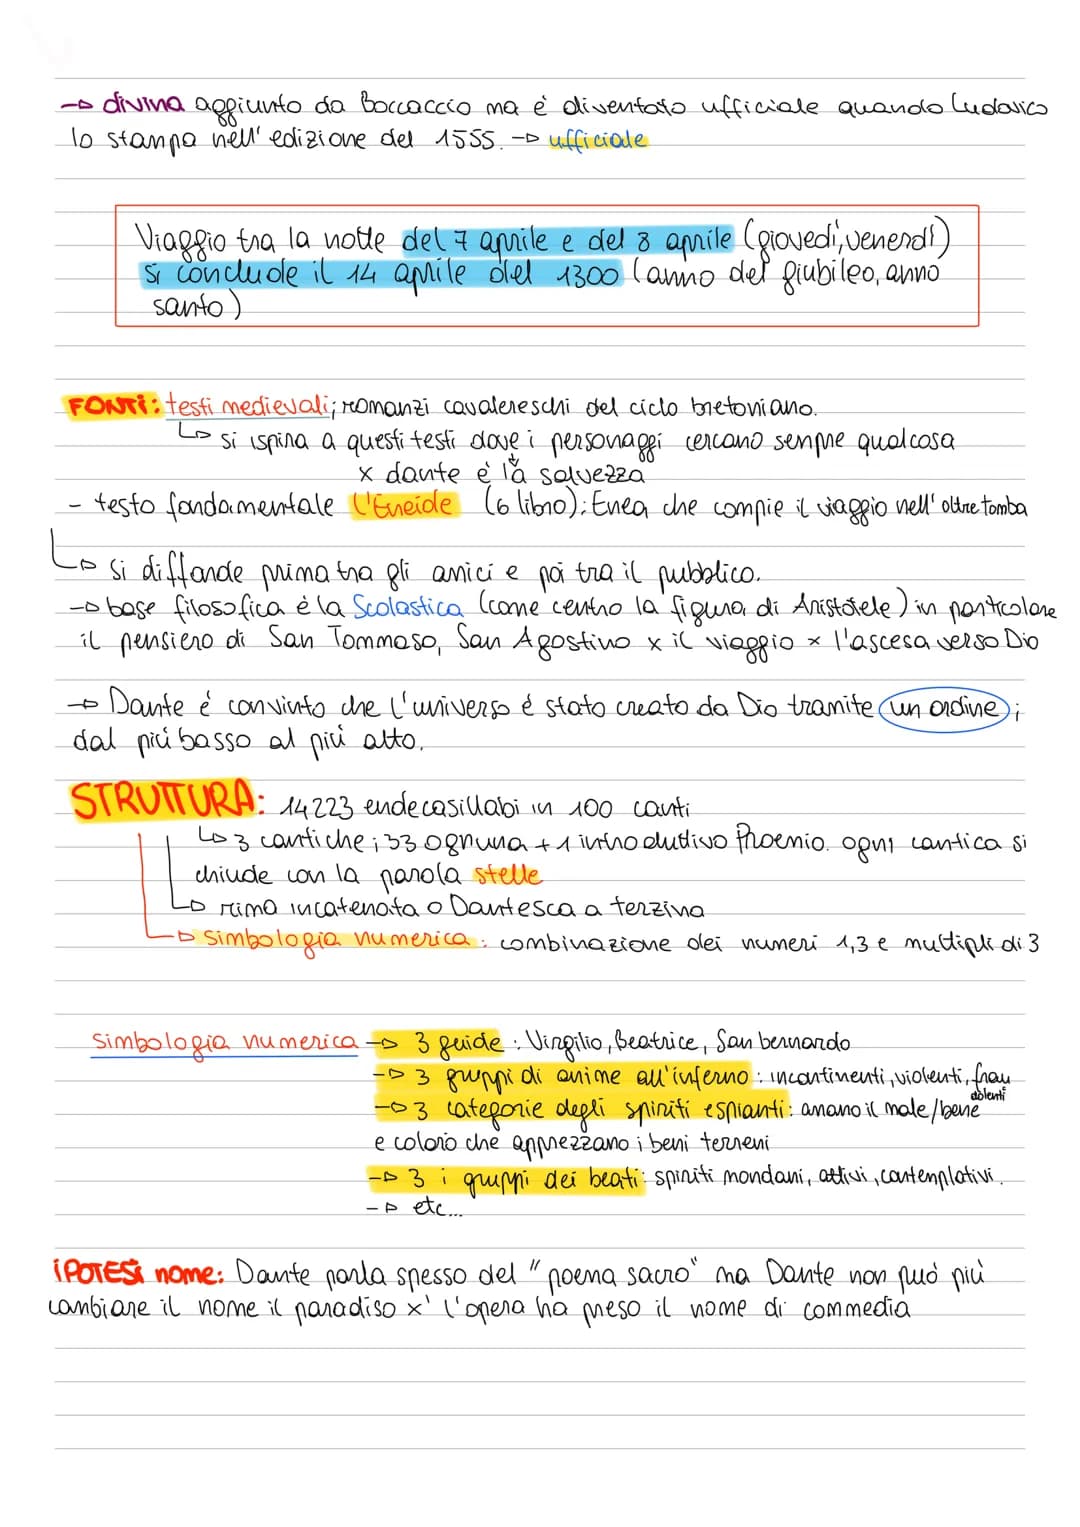 → divina aggiunto da Boccaccio ma é diventato ufficiale quando Ludovico
lo stampa nell'edizione del 1555. → ufficiale
Viaggio tra la notte del 7 aprile e del 8 aprile (giovedì, venerdì)
si conclude il 14 aprile del 1300 (anno del giubileo, anno
santo)
FONTi: testi medievali; romanzi cavalereschi del ciclo bretoniano.
↳ si ispira a questi testi dove i personaggi cercano sempre qualcosa
x dante é la salvezza
- testo fondamentale l'Eneide (6 libro): Enea che compie il viaggio nell'oltre tomba
↳ si diffonde prima tra gli amici e poi tra il pubblico.
→ base filosofica é la Scolastica (come centro la figura di Aristotele) in particolare
il pensiero di San Tommaso, San Agostino x il viaggio x l'ascesa verso Dio
→ Dante é convinto che l'universo é stato creato da Dio tramite un ordine;
dal piú basso al piú alto.
STRUTTURA: 14223 endecasillabi in 100 canti
↳ 3 cantiche; 33 ognuna + 1 introdutivo Proemio. ogni cantica si
chiude con la parola stelle
↳ rima incatenata o Dantesca a terzina
→ simbologia numerica: combinazione dei numeri 1,3 e multipli di 3
simbologia numerica → 3 guide: Virgilio, Beatrice, San bernardo
→ 3 gruppi di anime all'inferno: incontinenti, violenti, frau
dolenti
→ 3 categorie degli spiriti espianti: amano il male/bene
e coloro che apprezzano i beni terreni
→ 3 i gruppi dei beati: spiriti mondani, attivi, contemplativi.
→ etc...
iPOTESi nome: Dante parla spesso del "poema sacro" ma Dante non può più
cambiare il nome il paradiso x' l'opera ha preso il nome di commedia